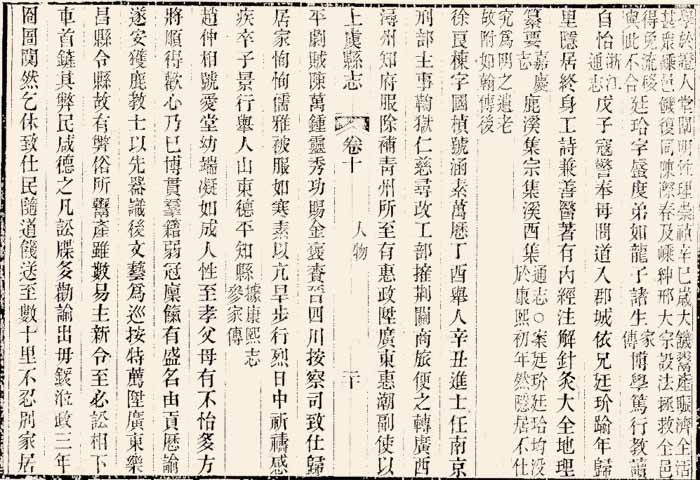 得免流殍 邑餓復同陳際春及嵊科邢大宗設法拯救全邑
與此不合 廷玠字盛度弟如龍子諸生家傳博學篤行教讀
自怡浙江通志戊子寇警奉母間道入郡城依兄廷玠踰年歸
里隱居終身工詩兼善醫著有內經注解針灸大全地理
纂要嘉慶志 鹿溪集宗集溪西集通志○案廷玠廷玲均沒於康熙初年然隱居不仕
究為明之遺老故附如翰傳後
徐良棟字國楨號涵素萬曆丁酉舉人辛丑進士任南京
刑部主事鞫獄仁慈尋改工部搉荆關商旅便之轉廣西
潯州知府服除補青州所至有惠政陞廣東惠潮副使以
上虞縣志 卷十 人物 二十
平劇賊陳萬鍾靈秀功賜金褒賚晉四川按察司致仕歸
居家恂恂儒雅被服如寒素以亢旱步行烈日中祈禱感
疾卒子景行舉人山東德平知縣據康熙志參家傳
趙仲相號愛堂幼端凝如成人性至孝父母有不怡多方
將順得歡心乃已博貫羣籍弱冠廩餼有盛名由貢曆諭
遂安獲鹿教士以先器識後文藝為巡按特薦陞廣東樂
昌縣令縣故有弊俗所鬻產雖數易主新令至必訟相下
車首鏟其弊民咸德之凡訟牒多勸諭出毋鍰涖政三年
囹圄闃然乞休致仕民隨道餞送至數十里不忍別家居